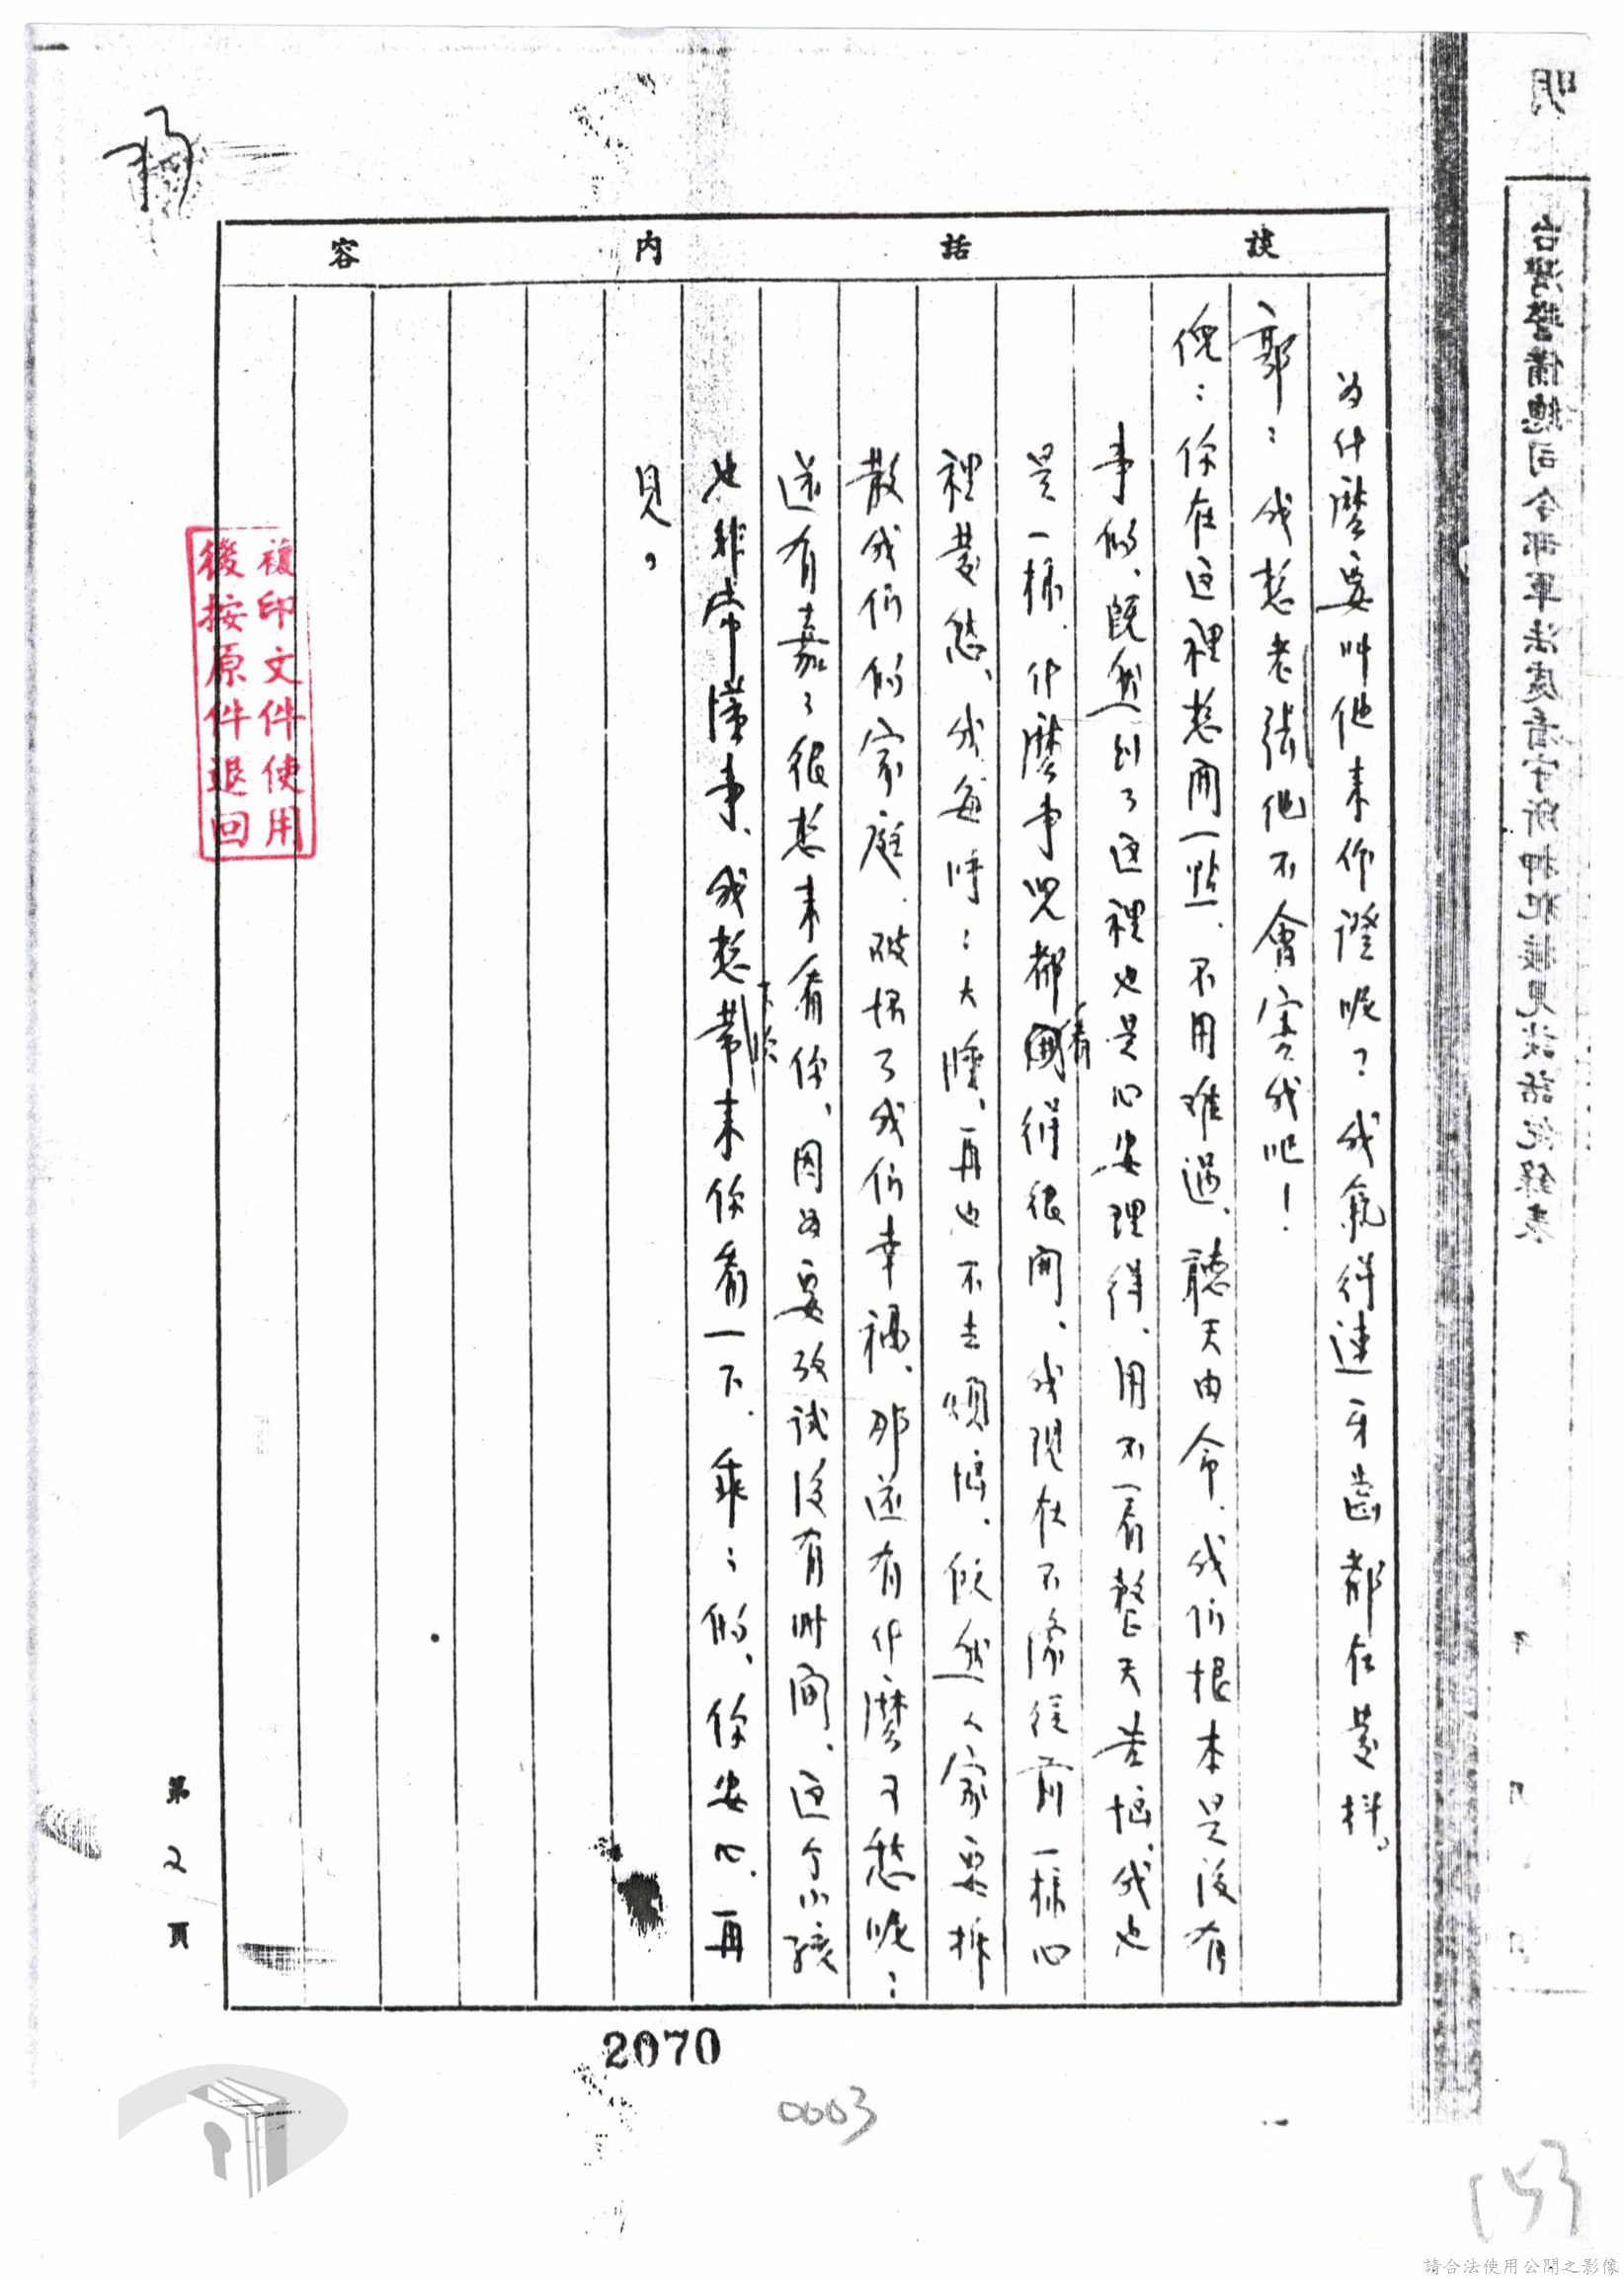 談話內容
為什麼要叫他來作證呢？我氣得連牙齒都在發抖。
郭：我想老張他不會害我吧！
倪：你在这裡想開一點、不用难過、聽天由命、我们根本是没有
事的、既然到了这裡也是心安理得、用不着整天苦惱、我也
是一樣、什麼事兒都看得很開、我現在不像從前一樣心
裡發愁、我每吁：大睡、再也不去煩惱、既然人家要拆
散我们的家庭、破坏了我们幸福、那还有什麼可愁呢：
还有嘉々很想来看你、因為要攷試没有时间、这个小孩
也非常懂事、我想下次带来你看一下、乖：的、你安心、再
見。
複印文件使用
後按原件退回
第 2 頁
2070
0003
153
台灣警備總司令部軍法處看守所押犯接見談話紀錄表
明
請合法使用公開之影像